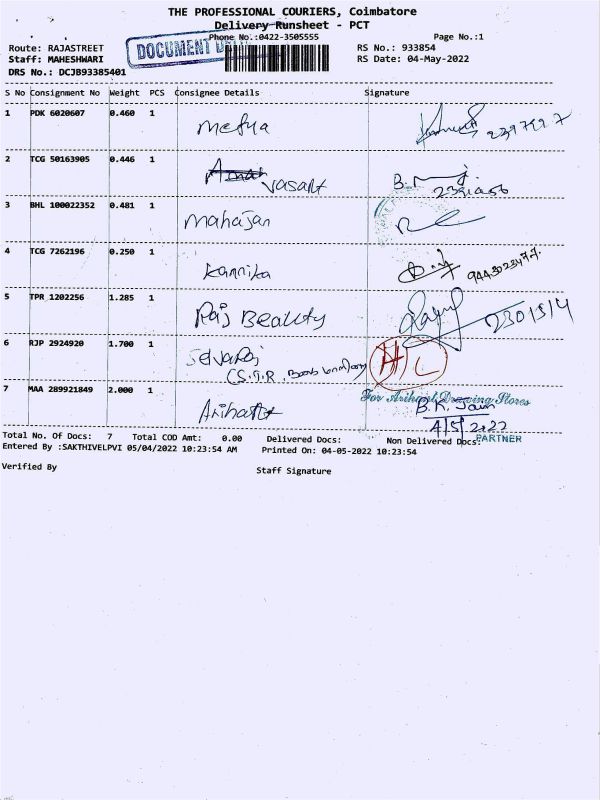 THE PROFESSIONAL COURIERS, Coimbatore
Delivery Runsheet - PCT
Phone No.:0422-3505555
Page No.:1
Route: RAJASTREET
RS No.: 933854
Staff: MAHESHWARI
RS Date: 04-May-2022
DOCUMENT
DRS No.: DCJB93385401
S No Consignment No Weight PCS Consignee Details Signature
1 PDK 6020607 0.460 1 Mefna 2397597
2 TCG 50163905 0.446 1 Vasant B.
3 BHL 100022352 0.481 1 Mahajan
4 TCG 7262196 0.250 1 Kannika
5 TPR 1202256 1.285 1 Raj Beauty 2301514
6 RJP 2924920 1.700 1 Selvaraj H L
(S.T.R.
7 MAA 289921849 2.000 1 Arihant
For Arihant Drawing Stores
B.K. Jain
4/5/2022
PARTNER
Total No. Of Docs: 7 Total COD Amt: 0.00 Delivered Docs: Non Delivered Docs:
Entered By :SAKTHIVELPVI 05/04/2022 10:23:54 AM Printed On: 04-05-2022 10:23:54
Verified By
Staff Signature